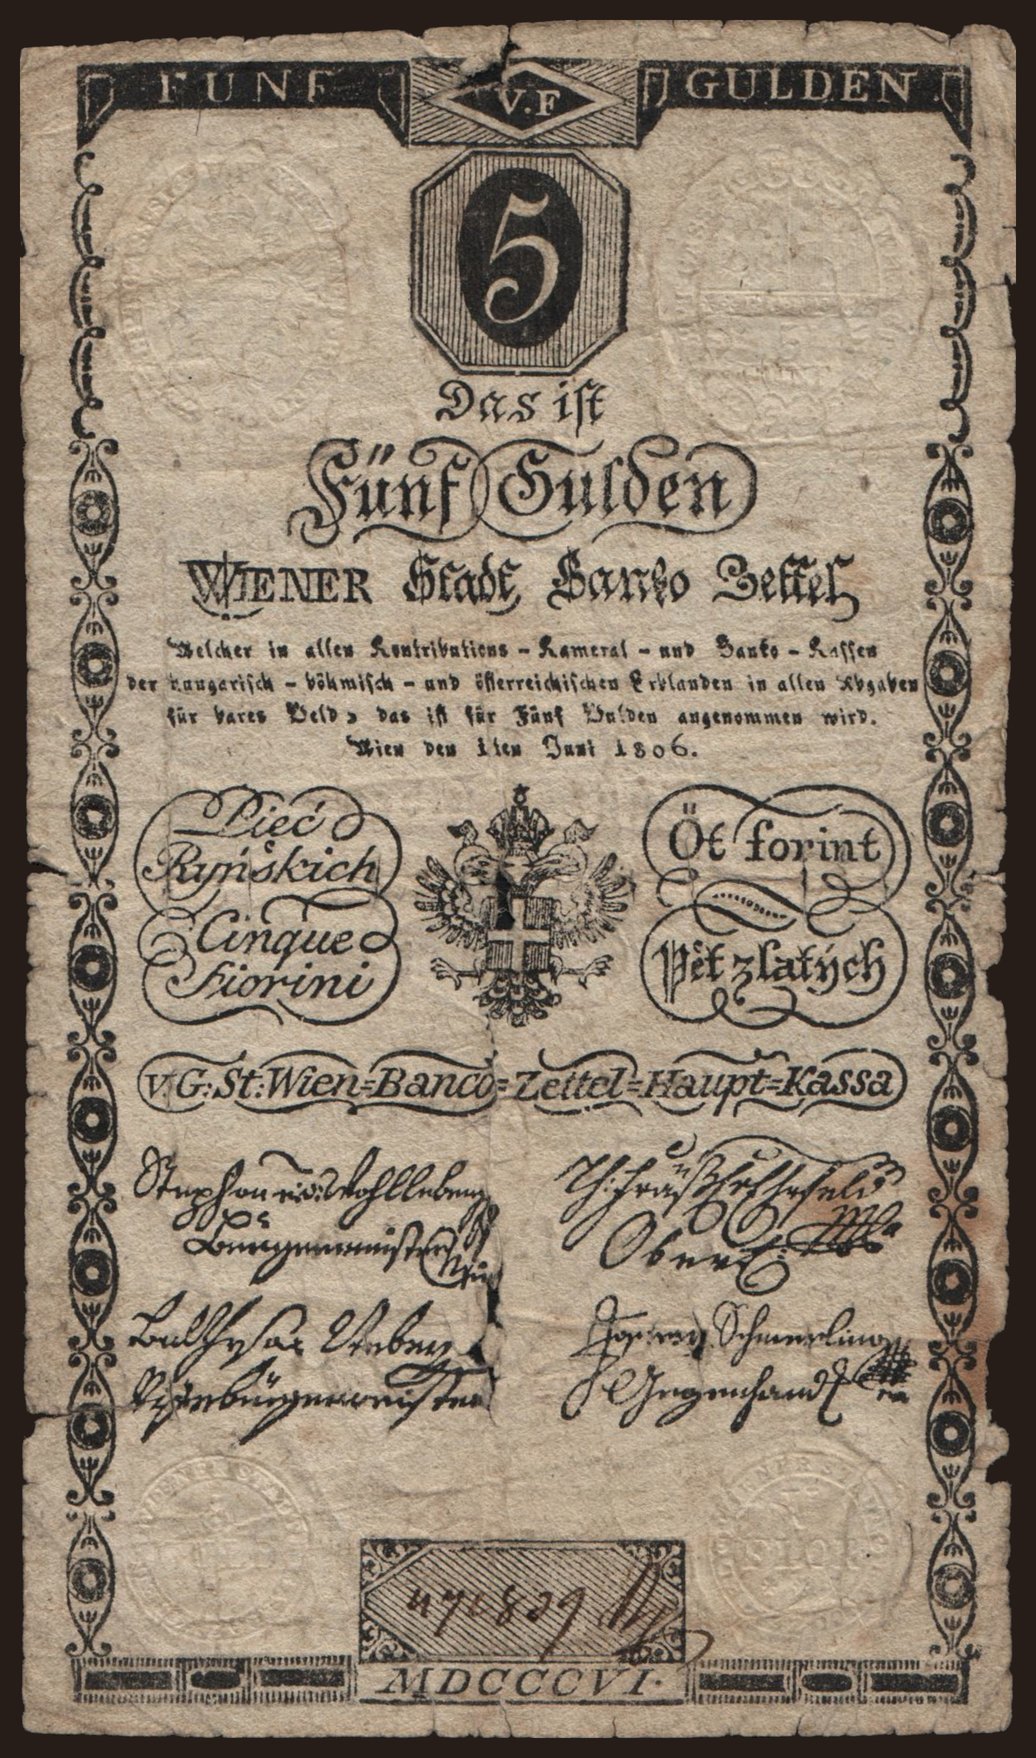 FUNF
V.F
GULDEN
5
Das ist
Fünf Gulden
WIENER Stadt Banko Zettel
Welcher in allen Kontributions - Kameral - und Banko - Kassen
der hungarisch - böhmisch - und österreichischen Erblanden in allen Abgaben
für bares Geld, das ist für Fünf Gulden angenommen wird.
Wien den 1ten Juni 1806.
Pieć
Ryńskich
Cinque
Fiorini
Öt forint
Pět zlatých
V.G: St: Wien=Banco=Zettel=Haupt=Kassa
Stephan
Burgermeister
Oberd:
Schmerling
Gegenhand
MDCCCVI.